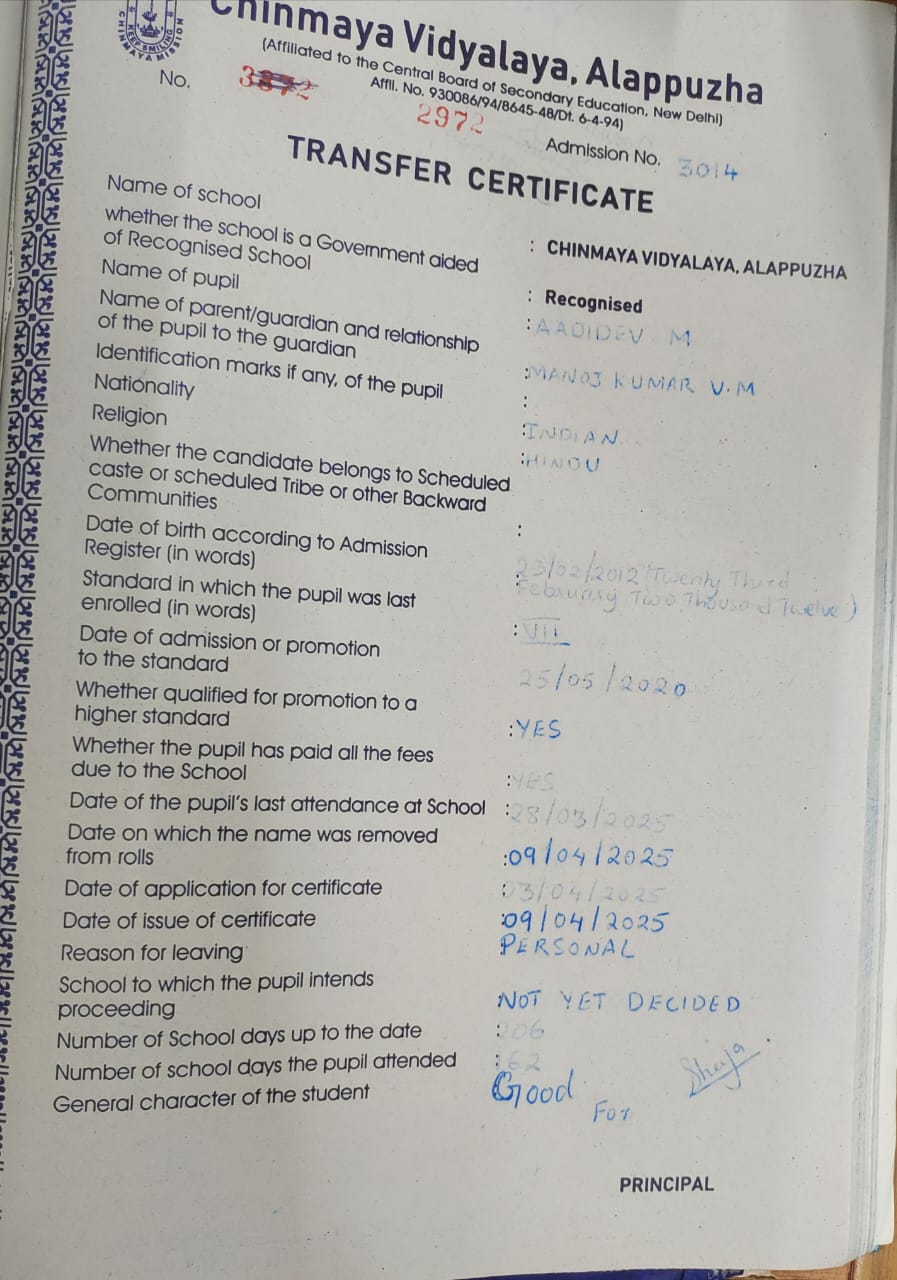 KEEP SMILING
CHINMAYA MISSION
Chinmaya Vidyalaya, Alappuzha
(Affiliated to the Central Board of Secondary Education, New Delhi)
Affil. No. 930086/94/8645-48/Dt. 6-4-94)
No.
2972
Admission No. 3014
TRANSFER CERTIFICATE
Name of school : CHINMAYA VIDYALAYA, ALAPPUZHA
whether the school is a Government aided
of Recognised School : Recognised
Name of pupil : AADIDEV M
Name of parent/guardian and relationship
of the pupil to the guardian : MANOJ KUMAR V.M
Identification marks if any, of the pupil :
Nationality : INDIAN
Religion : HINDU
Whether the candidate belongs to Scheduled
caste or scheduled Tribe or other Backward
Communities :
Date of birth according to Admission
Register (in words) : 23/02/2012 (Twenty Third
February Two Thousand Twelve)
Standard in which the pupil was last
enrolled (in words) : VII
Date of admission or promotion
to the standard 25/05/2020
Whether qualified for promotion to a
higher standard : YES
Whether the pupil has paid all the fees
due to the School : YES
Date of the pupil's last attendance at School : 28/03/2025
Date on which the name was removed
from rolls : 09/04/2025
Date of application for certificate : 03/04/2025
Date of issue of certificate : 09/04/2025
Reason for leaving : PERSONAL
School to which the pupil intends
proceeding NOT YET DECIDED
Number of School days up to the date : 206
Number of school days the pupil attended :
General character of the student Good
For
PRINCIPAL